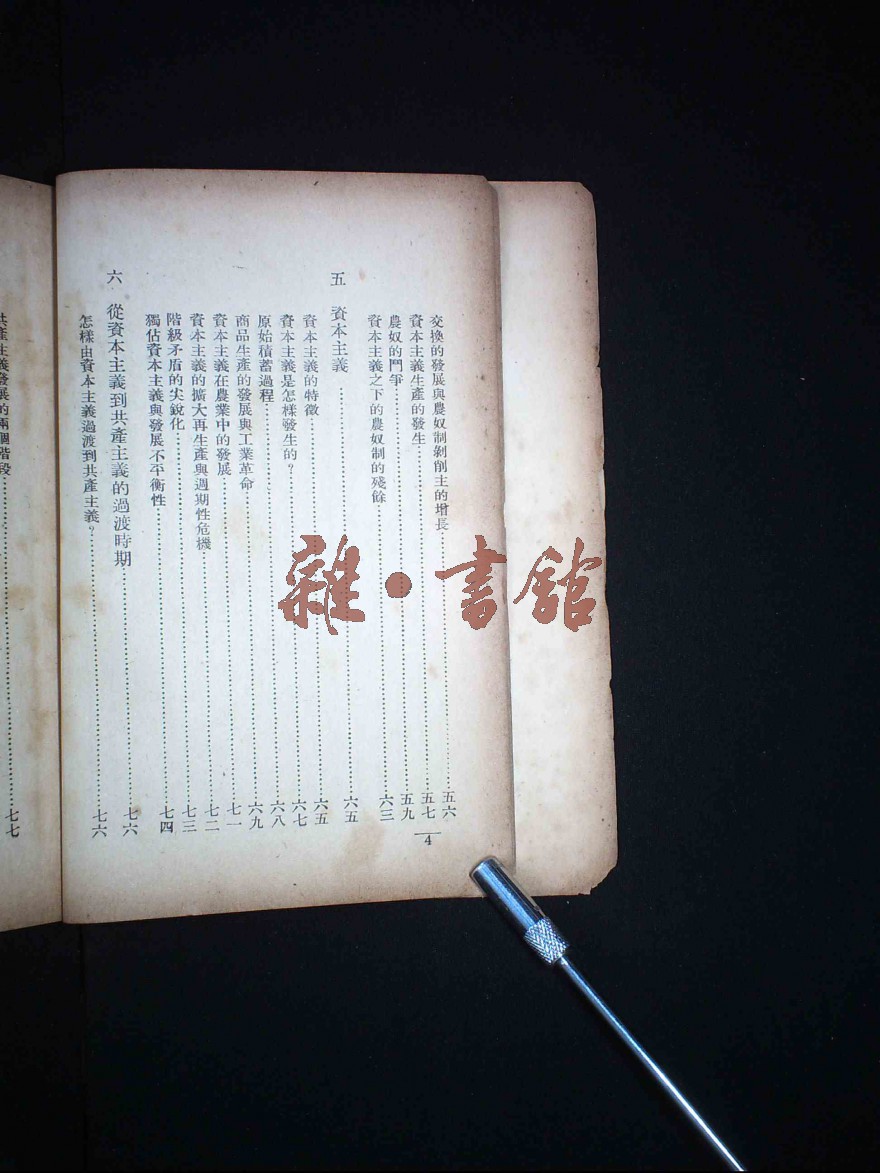 交換的發展與農奴制剝削主的增長……五六
資本主義生產的發生……五七
農奴的鬥爭……五九
資本主義之下的農奴制的殘餘……六三
五 資本主義……六五
資本主義的特徵……六五
資本主義是怎樣發生的？……六七
原始積蓄過程……六八
商品生產的發展與工業革命……六九
資本主義在農業中的發展……七一
資本主義的擴大再生產與週期性危機……七二
階級矛盾的尖銳化……七三
獨佔資本主義與發展不平衡性……七四
六 從資本主義到共產主義的過渡時期……七六
怎樣由資本主義過渡到共產主義？……七六
4
共產主義發展的兩個階段……七七
雜·書館